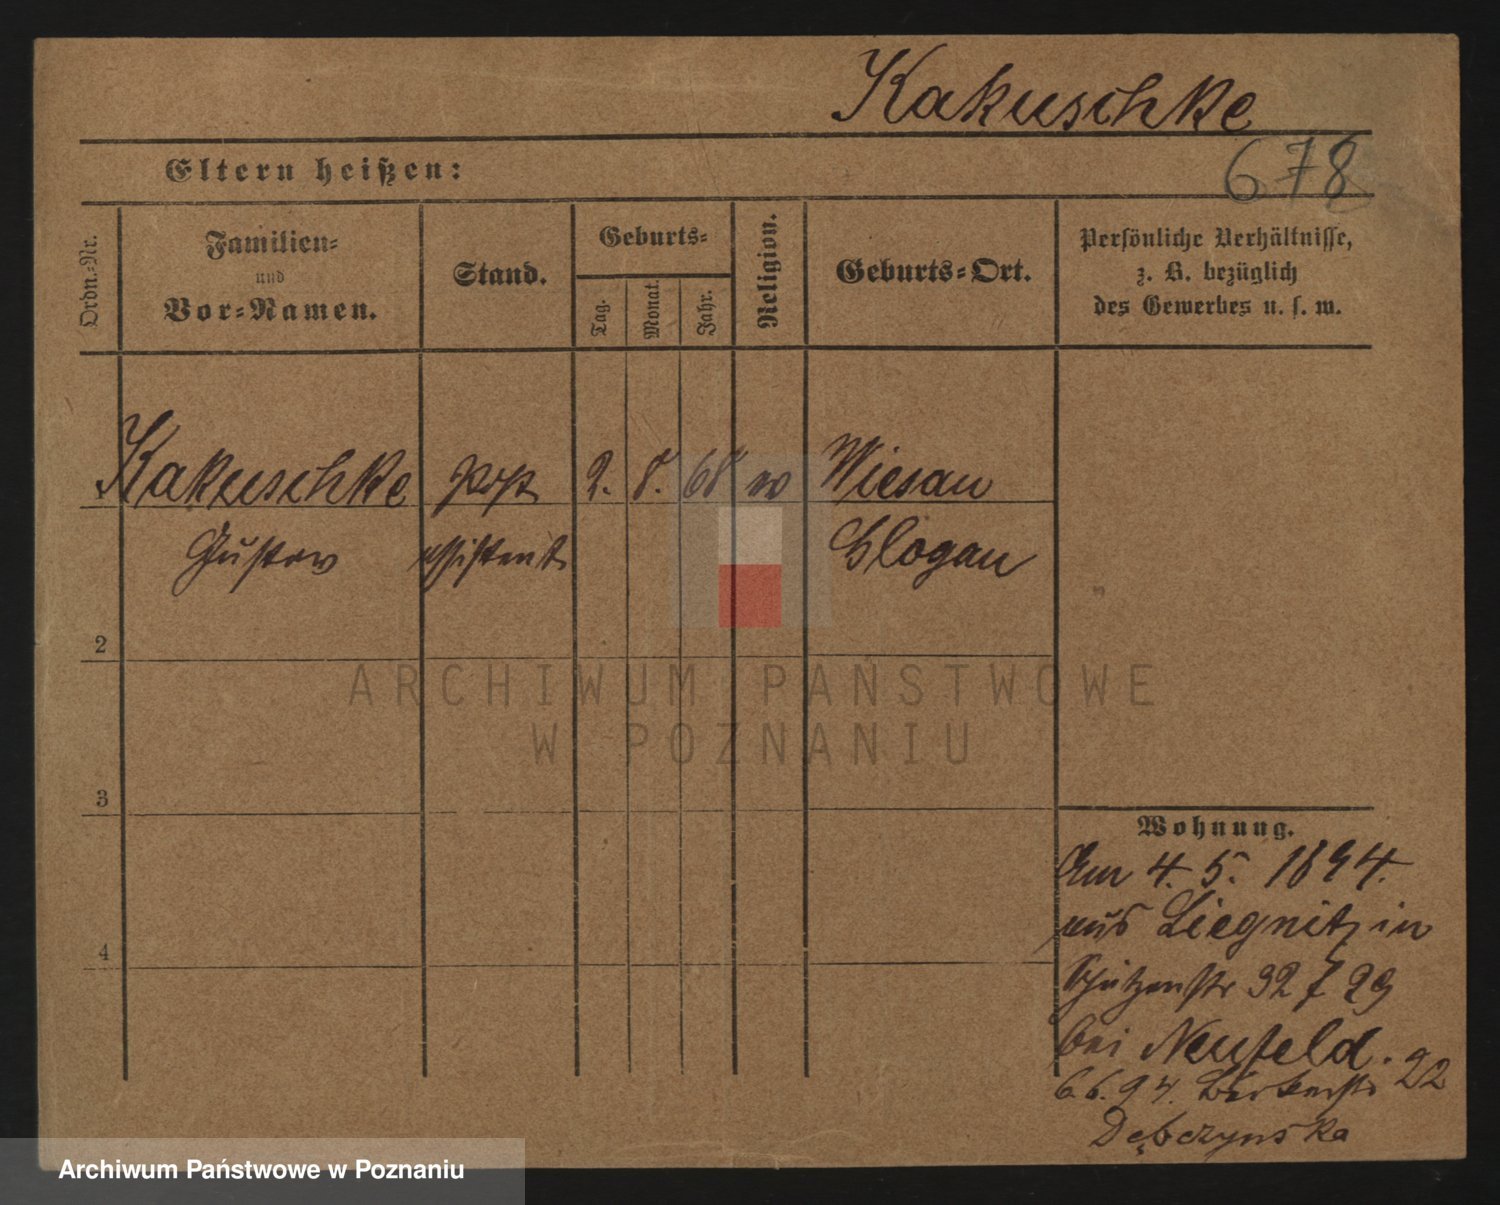 Kakuschke
678
Eltern heißen:
Ordn.-Nr.
Familien-
und
Vor-Namen.
Stand.
Geburts-
Tag.
Monat.
Jahr.
Religion.
Geburts-Ort.
Persönliche Verhältnisse,
z. B. bezüglich
des Gewerbes u. s. w.
Kakuschke Post 2. 8. 68 ev Wiesau
Gustav assistent Glogau
2
3
4
Wohnung.
Am 4. 5. 1894.
aus Liegnitz in
Schützenstr 32 29
bei Neufeld.
6.6.94. 22
Dębczynska
ARCHIWUM PAŃSTWOWE
W POZNANIU
Archiwum Państwowe w Poznaniu